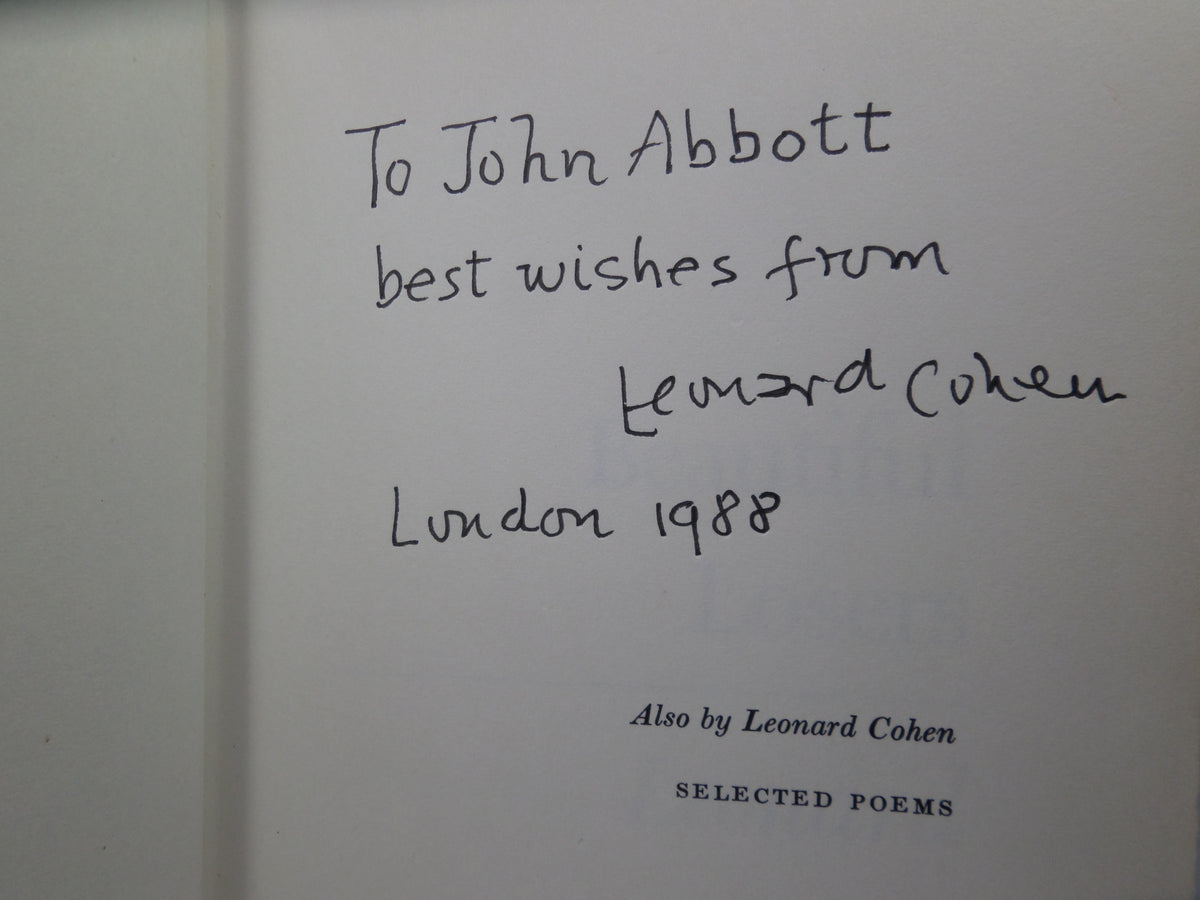 To John Abbott
best wishes from
Leonard Cohen
London 1988
Also by Leonard Cohen
SELECTED POEMS